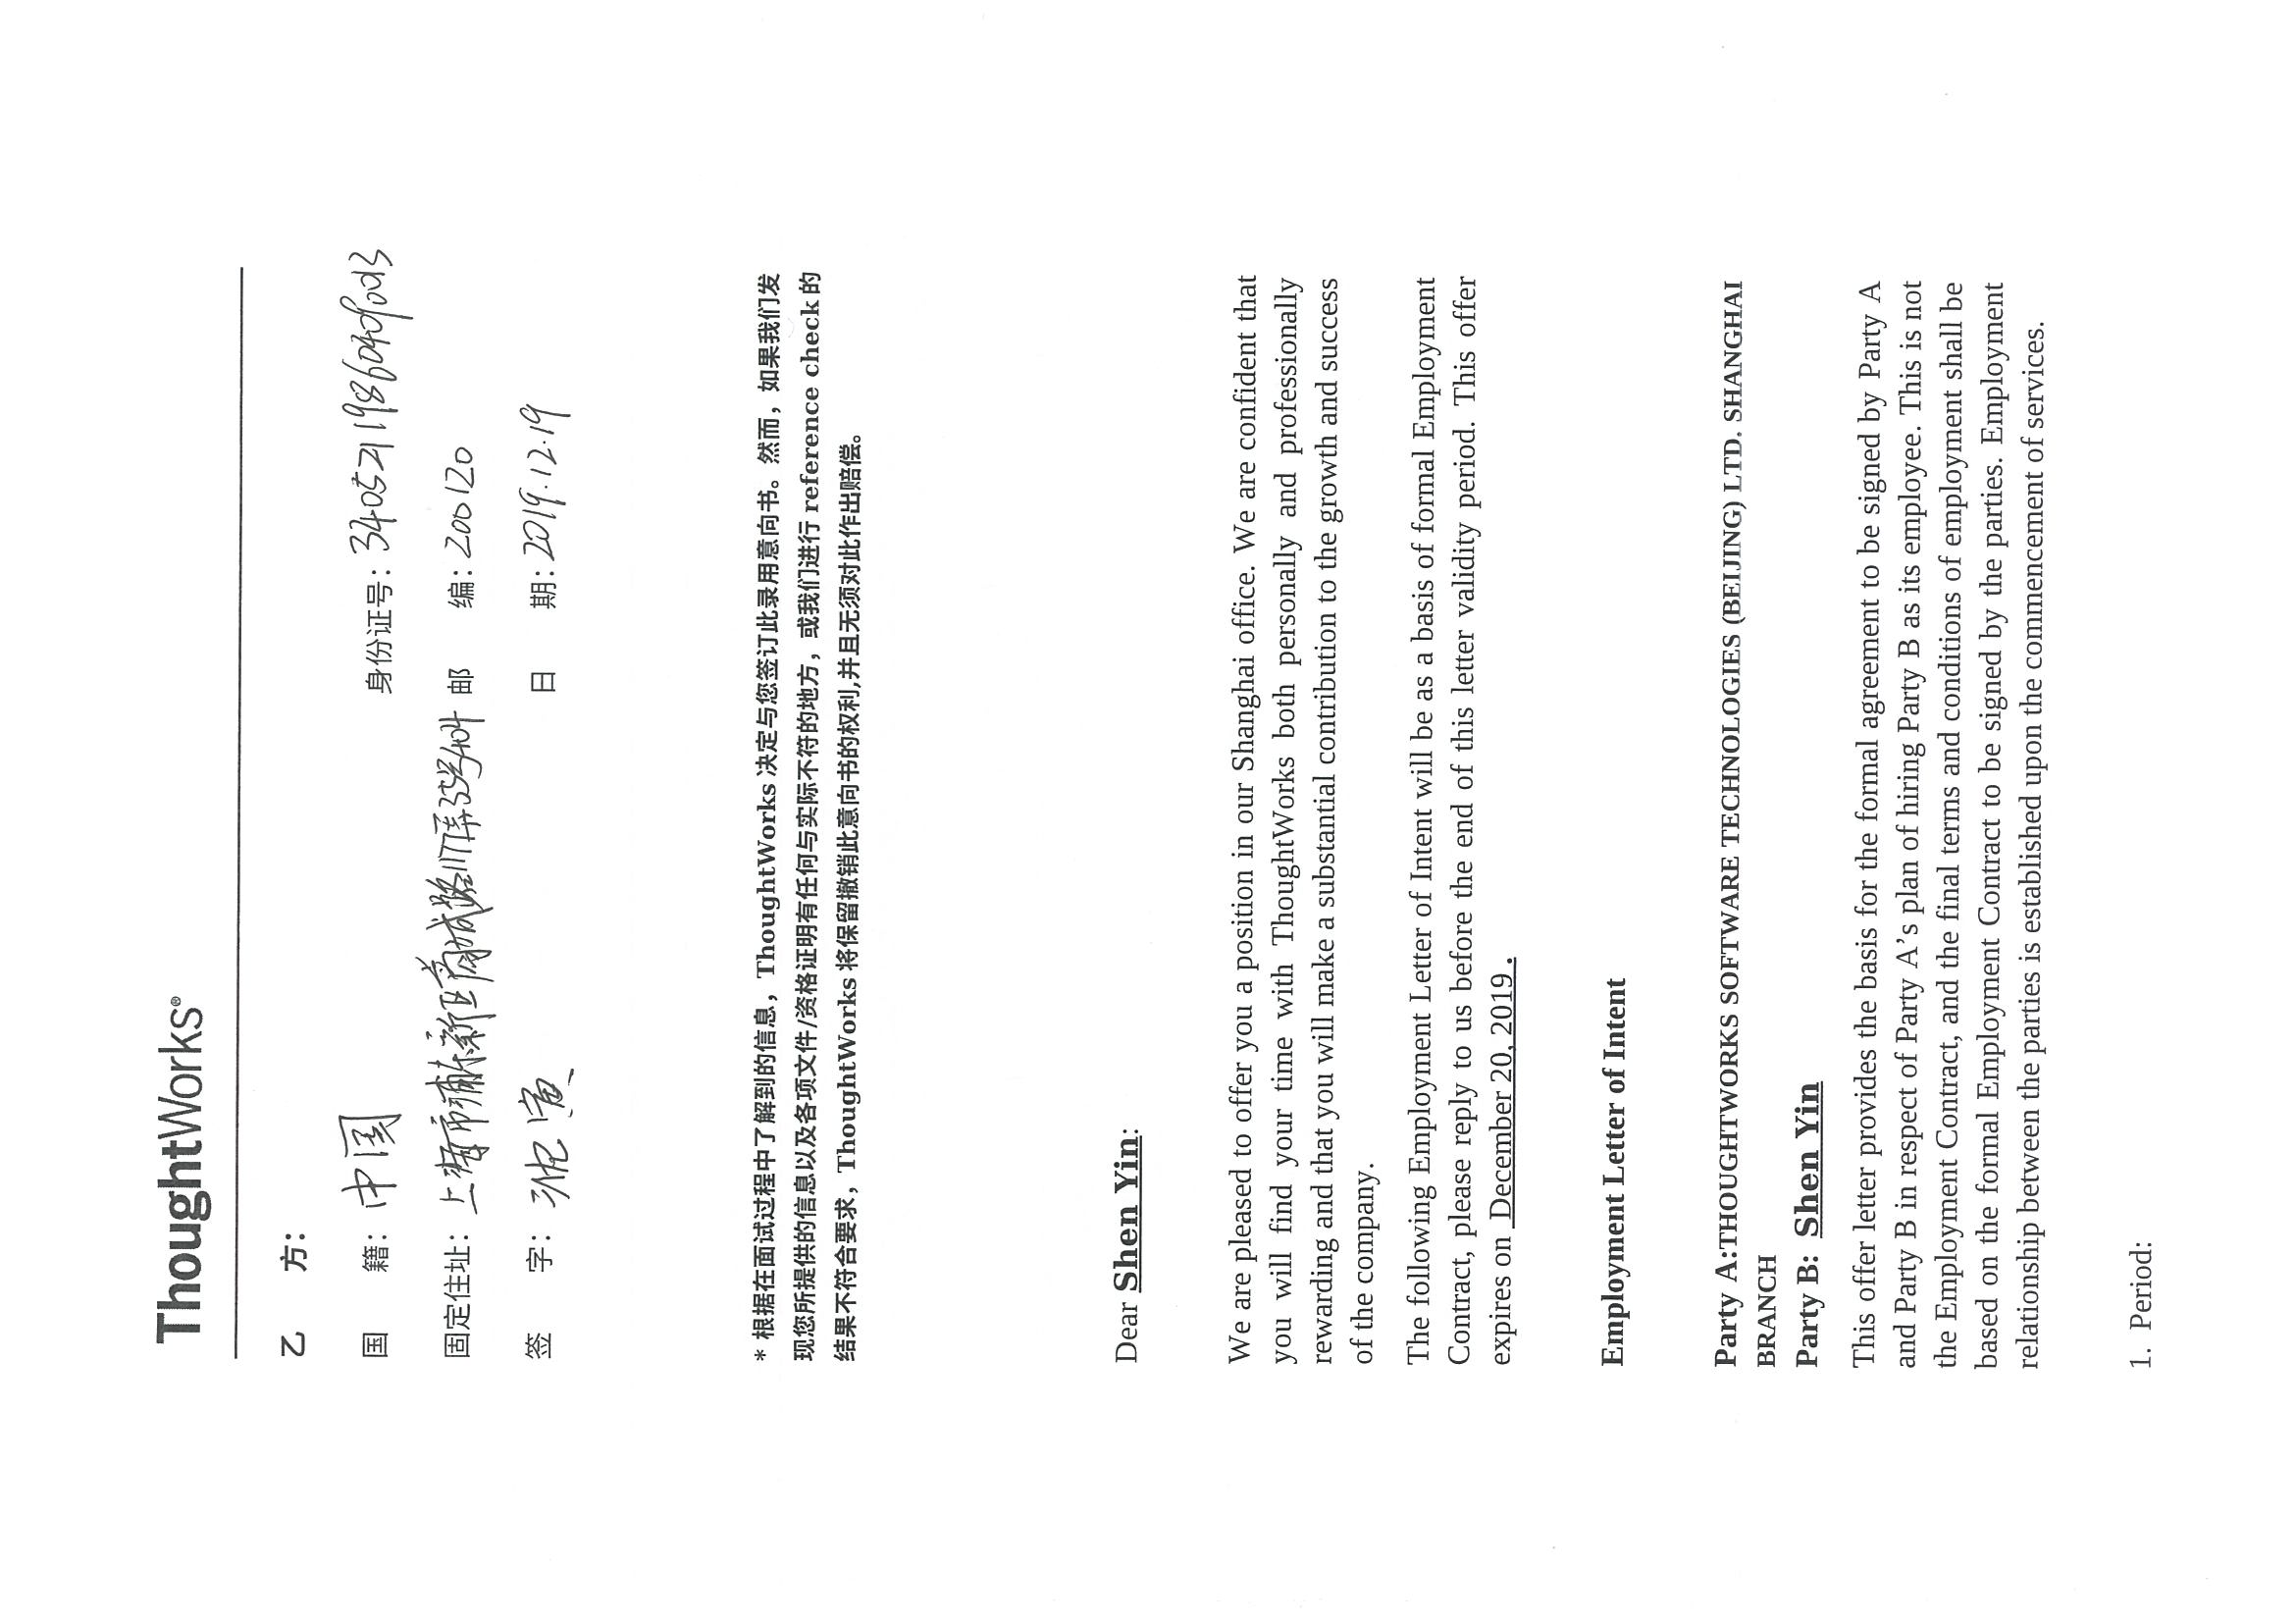 ThoughtWorks®
乙 方：
国 籍：中国 身份证号：340521198604090013
固定住址：上海市浦东新区商城路 35号404 邮 编：200120
签 字： 日 期：2019.12.19
* 根据在面试过程中了解到的信息，ThoughtWorks 决定与您签订此录用意向书。然而，如果我们发
现您所提供的信息以及各项文件/资格证明有任何与实际不符的地方，或我们进行 reference check 的
结果不符合要求，ThoughtWorks 将保留撤销此意向书的权利,并且无须对此作出赔偿。
Dear Shen Yin:
We are pleased to offer you a position in our Shanghai office. We are confident that
you will find your time with ThoughtWorks both personally and professionally
rewarding and that you will make a substantial contribution to the growth and success
of the company.
The following Employment Letter of Intent will be as a basis of formal Employment
Contract, please reply to us before the end of this letter validity period. This offer
expires on December 20, 2019.
Employment Letter of Intent
Party A:THOUGHTWORKS SOFTWARE TECHNOLOGIES (BEIJING) LTD. SHANGHAI
BRANCH
Party B: Shen Yin
This offer letter provides the basis for the formal agreement to be signed by Party A
and Party B in respect of Party A’s plan of hiring Party B as its employee. This is not
the Employment Contract, and the final terms and conditions of employment shall be
based on the formal Employment Contract to be signed by the parties. Employment
relationship between the parties is established upon the commencement of services.
1. Period: